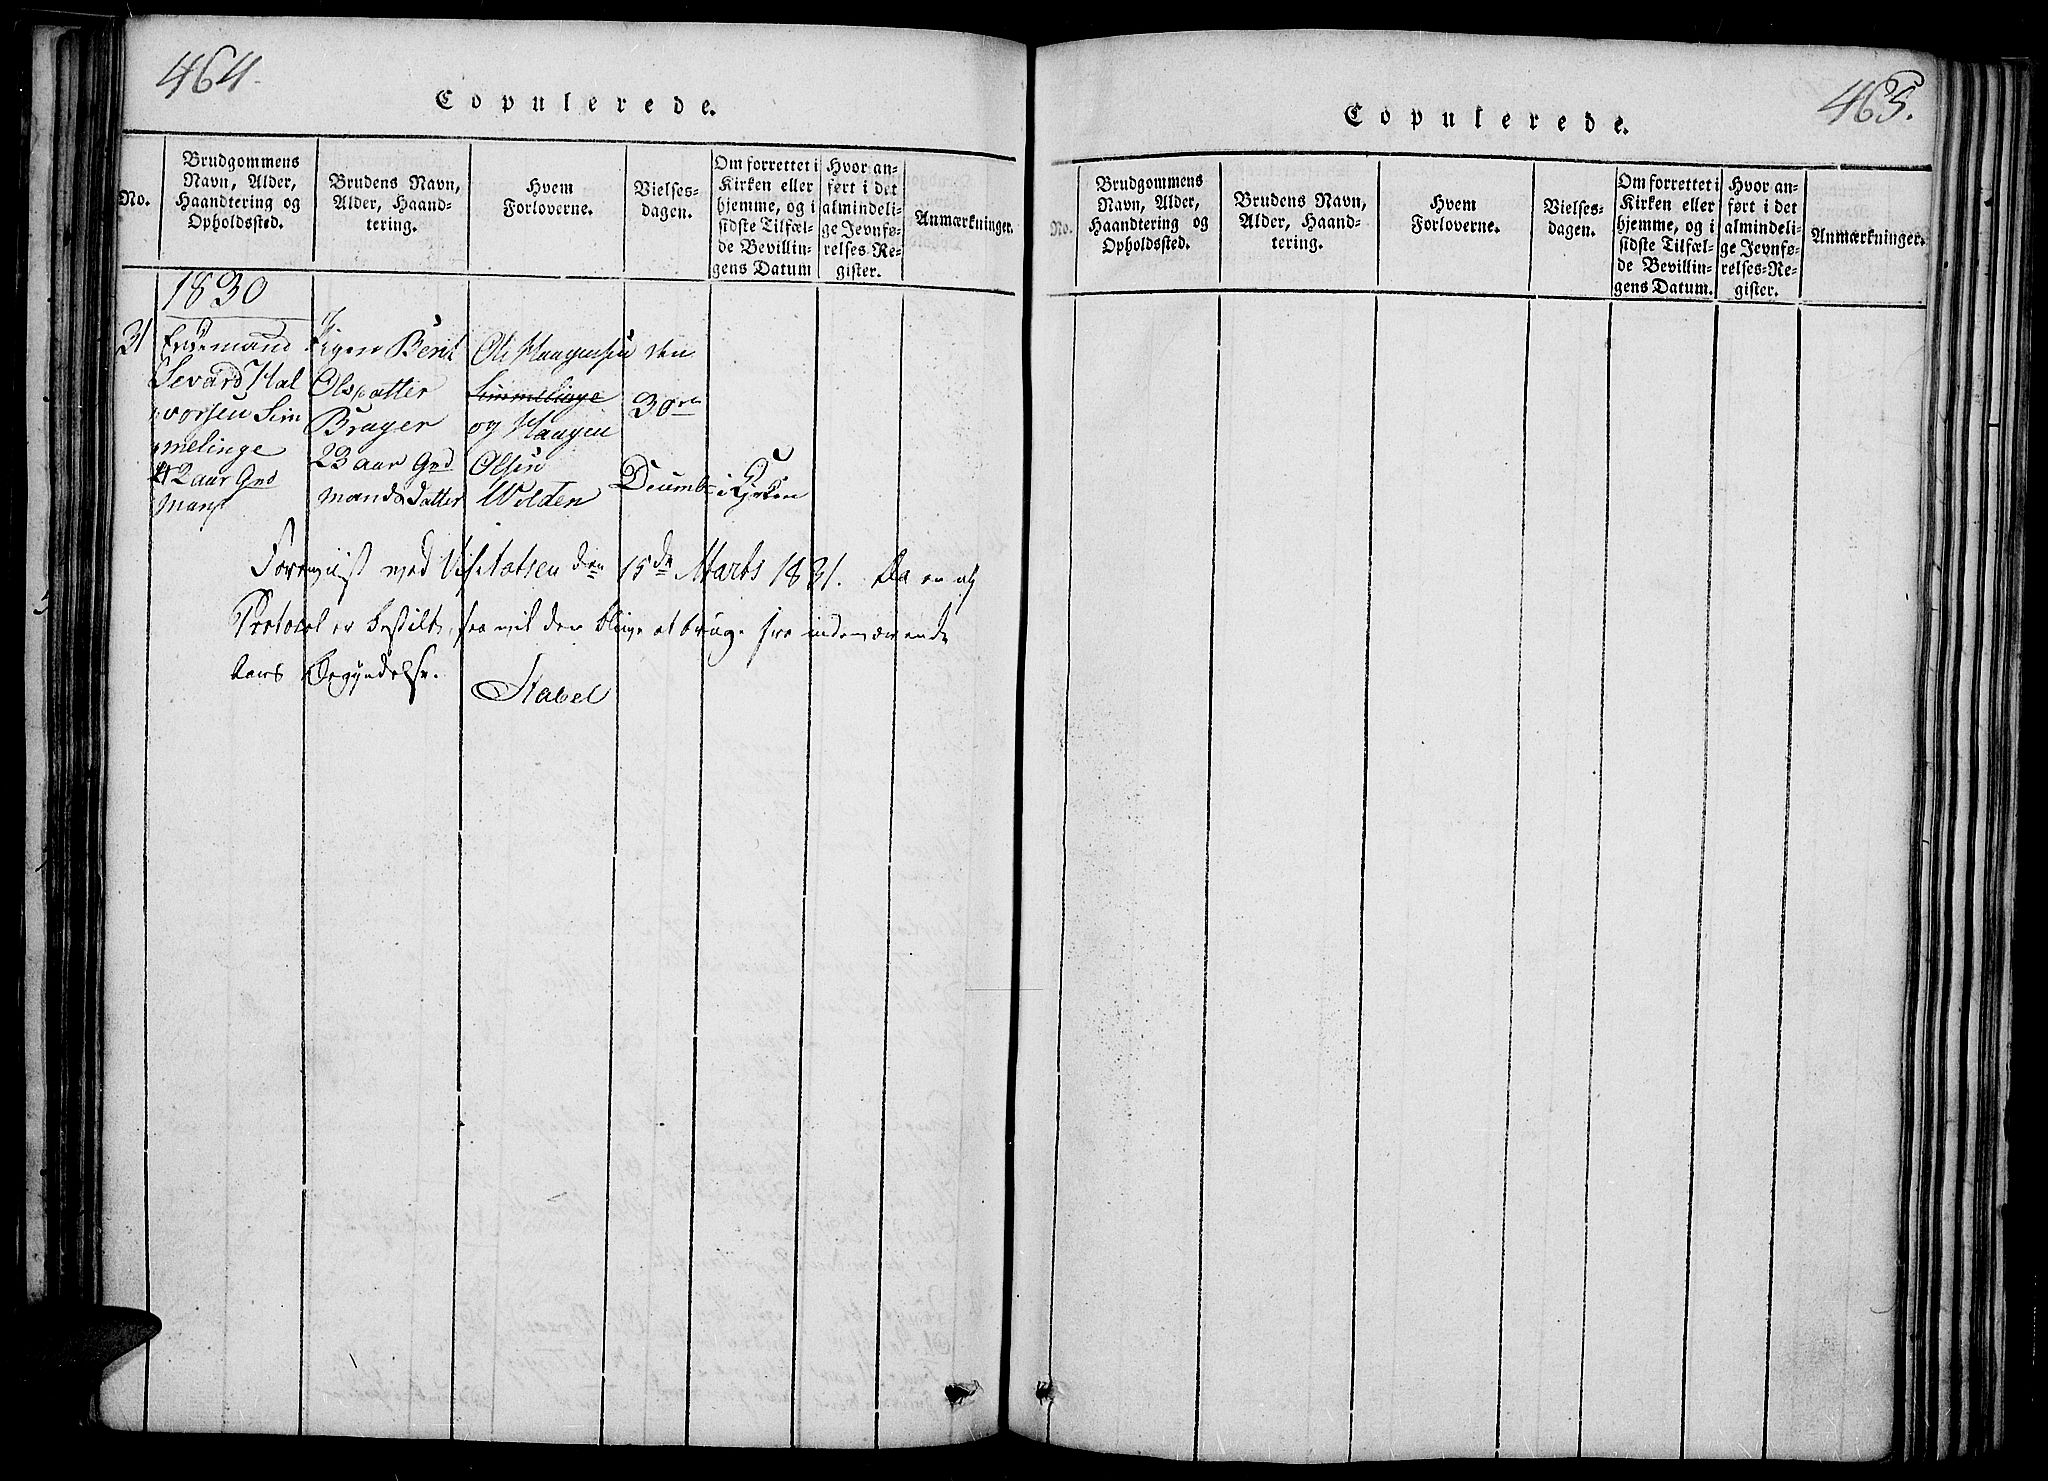 464.
Copulerede.
No.
Brudgommens
Navn, Alder,
Haandtering og
Opholdssted.
Brudens Navn,
Alder, Haand-
tering.
Hvem
Forloverne.
Vielses-
dagen.
Om forrettet i
Kirken eller
hjemme, og i
sidste Tilfæl-
de Bevillin-
gens Datum
Hvor an-
ført i det
almindeli-
ge Jevnfø-
relses-Re-
gister.
Anmærkninger.
1830
31
Enkemand
Sevard Hal
vorsen Sim
melinge
42 aar Grd
Mand
Pigen Berit
Olsdatter
Brager
23 aar Grd
mands Datter
Ole Haagensen
Simmelinge
og Haagen
Olsen
Wolden
den
30te
Decemb
i Kirken
Foreviist ved Visitatsen den 15de Marts 1831. Da en ny
Protocol er bestilt, saa vil den blive at bruge fra indeværende
Aars Begyndelse.
Stabel
465.
Copulerede.
No.
Brudgommens
Navn, Alder,
Haandtering og
Opholdssted.
Brudens Navn,
Alder, Haand-
tering.
Hvem
Forloverne.
Vielses-
dagen.
Om forrettet i
Kirken eller
hjemme, og i
sidste Tilfæl-
de Bevillin-
gens Datum.
Hvor an-
ført i det
almindeli-
ge Jevnfø-
relses-Re-
gister.
Anmærkninger.